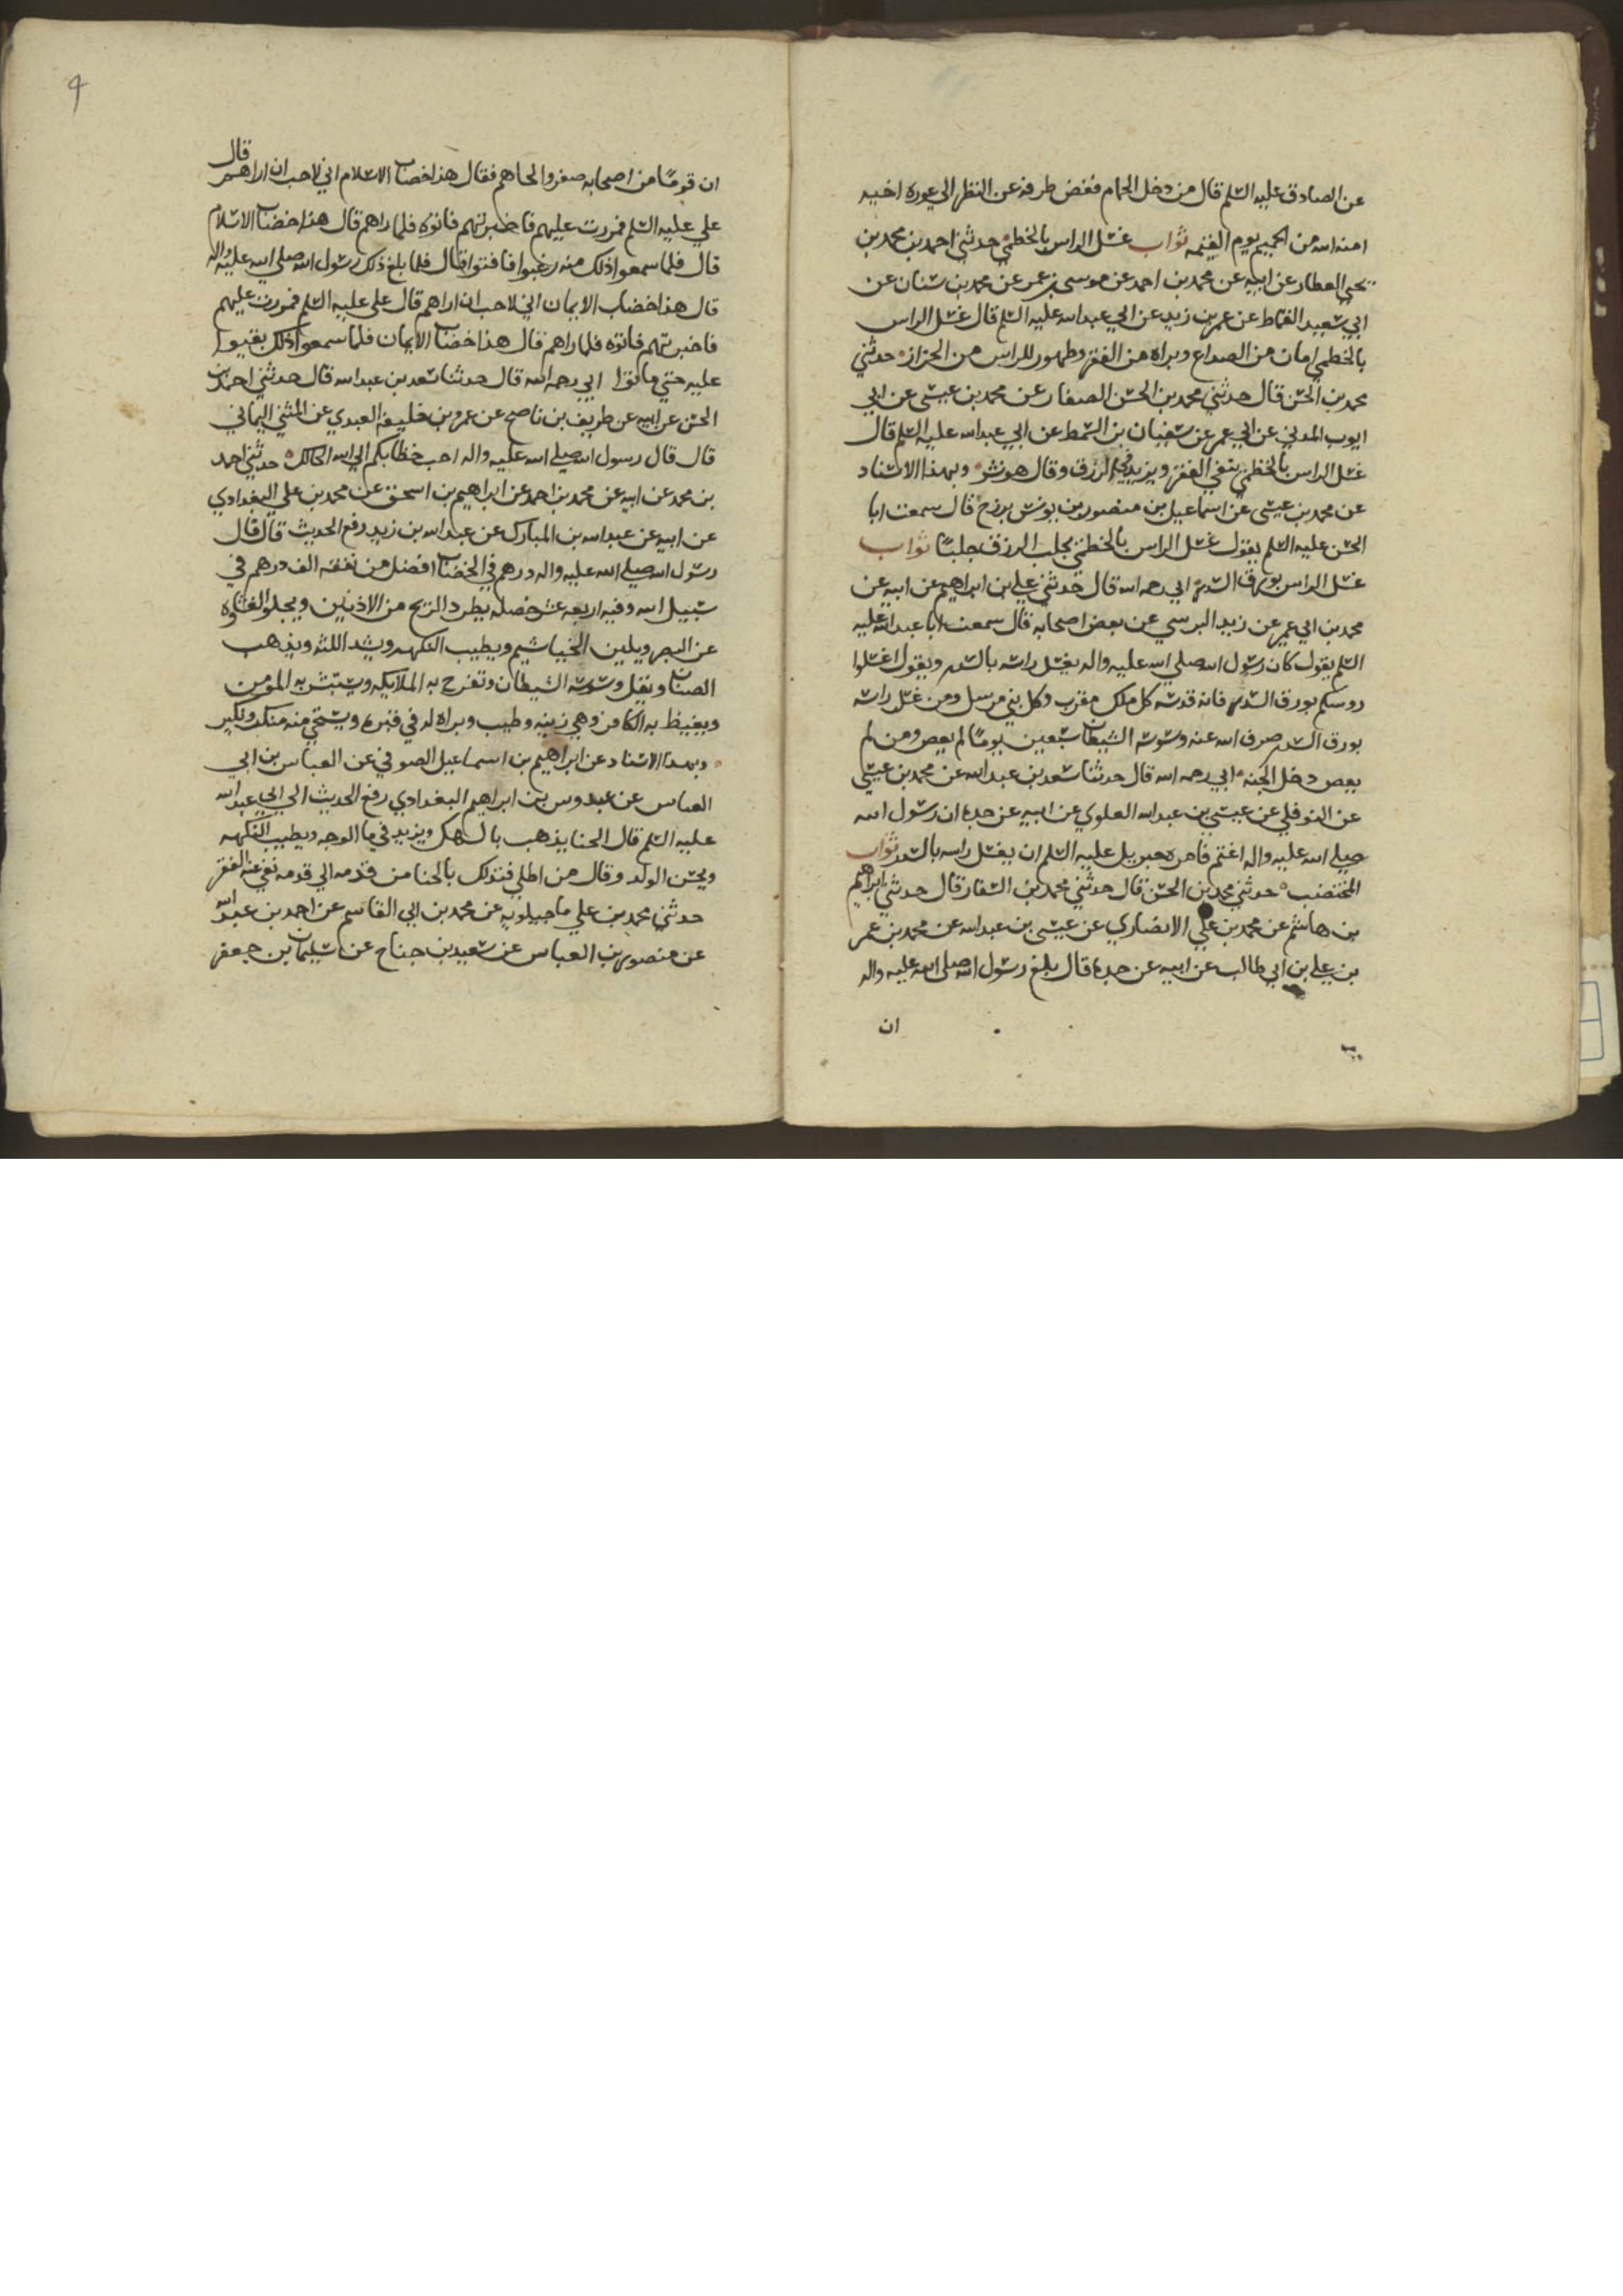 عن الصادق عليه السلم قال من دخل الحمام فغض طرفه عن النظر الي عورة اخيه
امنه الله من الحميم يوم القيمه ثواب غسل الراس بالخطمي حدثني احمد بن محمد بن
يحيي العطار عن ابيه عن محمد بن احمد عن موسى بن عمر عن محمد بن سنان عن
ابي سعيد القماط عن عمر بن زيد عن ابي عبدالله عليه السلم قال غسل الراس
بالخطمي امان من الصداع وبراة من الفقر وطهور للراس من الحزاز حدثني
محمد بن الحسن قال حدثني محمد بن الحسن الصفار عن محمد بن عيسى عن ابي
ايوب المدني عن ابي عمر عن سفيان بن السمط عن ابي عبدالله عليه السلم قال
غسل الراس بالخطمي ينفي الفقر ويزيد في الرزق وقال هو نشر وبهذا الاسناد
عن محمد بن عيسى عن اسماعيل بن منصور بن بزرج قال سمعت ابا
الحسن عليه السلم يقول غسل الراس بالخطمي يجلب الرزق جلبًا ثواب
غسل الراس بورق السدر ابي رحمه الله قال حدثني علي بن ابراهيم عن ابيه عن
محمد بن ابي عمير عن زيد البرسي عن بعض اصحابه قال سمعت ابا عبدالله عليه
السلم يقول كان رسول الله صلي الله عليه واله يغسل راسه بالسدر ويقول اغسلوا
روسكم بورق السدر فانه قدسه كل ملك مقرب وكل نبي مرسل ومن غسل راسه
بورق السدر صرف الله عنه وسوسه الشيطان سبعين يومًا لم يعص ومن لم
يعص دخل الجنه ابي رحمه الله قال حدثنا سعد بن عبدالله عن محمد بن عيسى
عن النوفلي عن عيسى بن عبدالله العلوي عن ابيه عن جده ان رسول الله
صلي الله عليه واله اغتم فامره جبريل عليه السلم ان يغسل راسه بالسدر ثواب
المختضب حدثني محمد بن الحسن قال حدثني محمد بن الصفار قال حدثني ابراهيم
بن هاشم عن محمد بن علي الانصاري عن عيسى بن عبدالله عن محمد بن عمر
بن علي بن ابي طالب عن ابيه عن جده قال بلغ رسول الله صلي الله عليه واله
ان
ان قومًا من اصحابه صفروا لحاهم فقال هذا خضاب الاسلام اني لاحب ان اراهم قال
علي عليه السلم فمررت عليهم فاخبرتهم فاتوه فلما راهم قال هذا خضاب الاسلام
قال فلما سمعوا ذلك منه رغبوا فاقنوا قال فلما بلغ ذلك رسول الله صلي الله عليه واله
قال هذا خضاب الايمان اني لاحب ان اراهم قال علي عليه السلم فمررت عليهم
فاخبرتهم فاتوه فلما راهم قال هذا خضاب الايمان فلما سمعوا ذلك بقيوا
عليه حتي ماتوا ابي رحمه الله قال حدثنا سعد بن عبدالله قال حدثني احمد بن
الحسن عن ابيه عن طريف بن ناصح عن عمرو بن خليفه العبدي عن المثني اليماني
قال قال رسول الله صلي الله عليه واله احب خضابكم الي الله الحالك حدثني احمد
بن محمد عن ابيه عن محمد بن احمد عن ابراهيم بن اسحق عن محمد بن علي البغدادي
عن ابيه عن عبدالله بن المبارك عن عبدالله بن زيد رفع الحديث قال قال
رسول الله صلي الله عليه واله درهم في الخضاب افضل من نفقه الف درهم في
سبيل الله وفيه اربعه عشر خصله يطرد الريح من الاذنين ويجلو الغشاوة
عن البصر ويلين الخياشيم ويطيب النكهه ويشد اللثه ويذهب
الصنان ويقل وسوسه الشيطان وتفرح به الملايكه ويستبشر به المؤمن
ويغيظ به الكافر وهي زينه وطيب وبراة له في قبره ويستحي منه منكر ونكير
وبهذا الاسناد عن ابراهيم بن اسماعيل الصوفي عن العباس بن ابي
العباس عن عبدوس بن ابراهيم البغدادي رفع الحديث الي ابي عبدالله
عليه السلم قال الحنا يذهب بالسهك ويزيد في ما الوجه ويطيب النكهه
ويحسن الولد وقال من اطلي فتدلك بالحنا من قدمه الي قدمه نفي عنه الفقر
حدثني محمد بن علي ماجيلويه عن محمد بن ابي القاسم عن احمد بن عبدالله
عن منصور بن العباس عن سعيد بن جناح عن سليمان بن جعفر